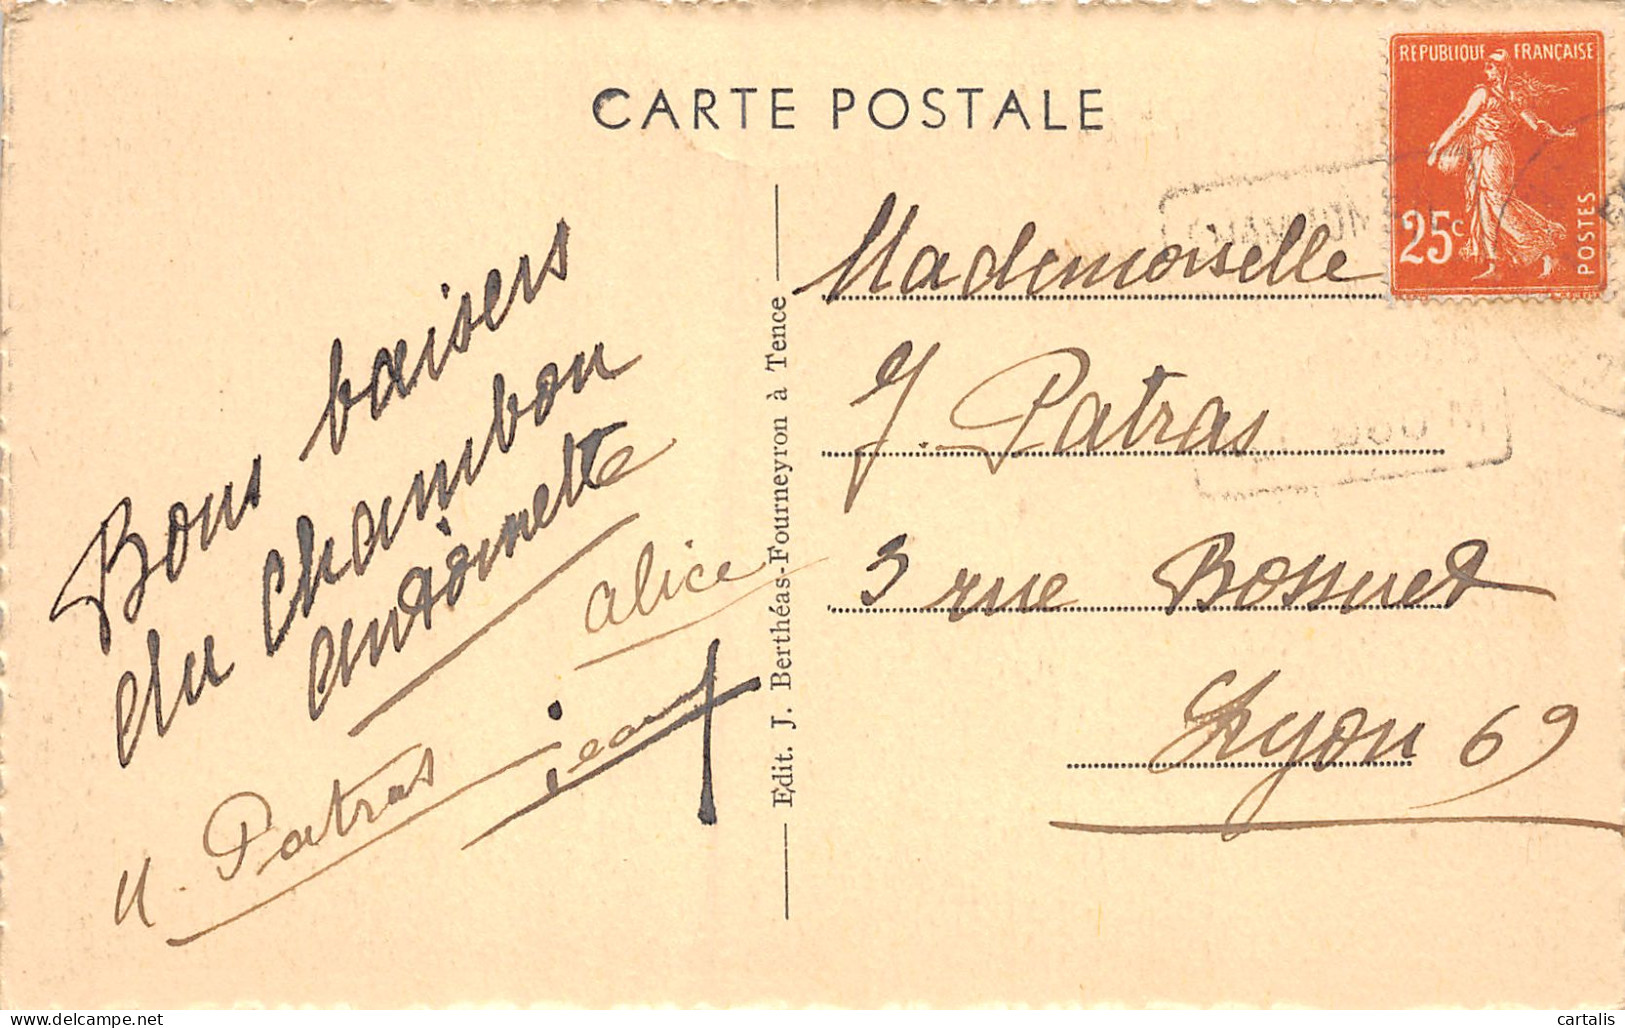 CARTE POSTALE
REPUBLIQUE FRANÇAISE
25c
POSTES
Bons baisers
du Chambon
antoinette
alice
M. Patras
jean
Edit. J. Berthéas-Fourneyron à Tence
Mademoiselle
J. Patras
3 rue Bossuet
Lyon 69
delcampe.net
cartalis